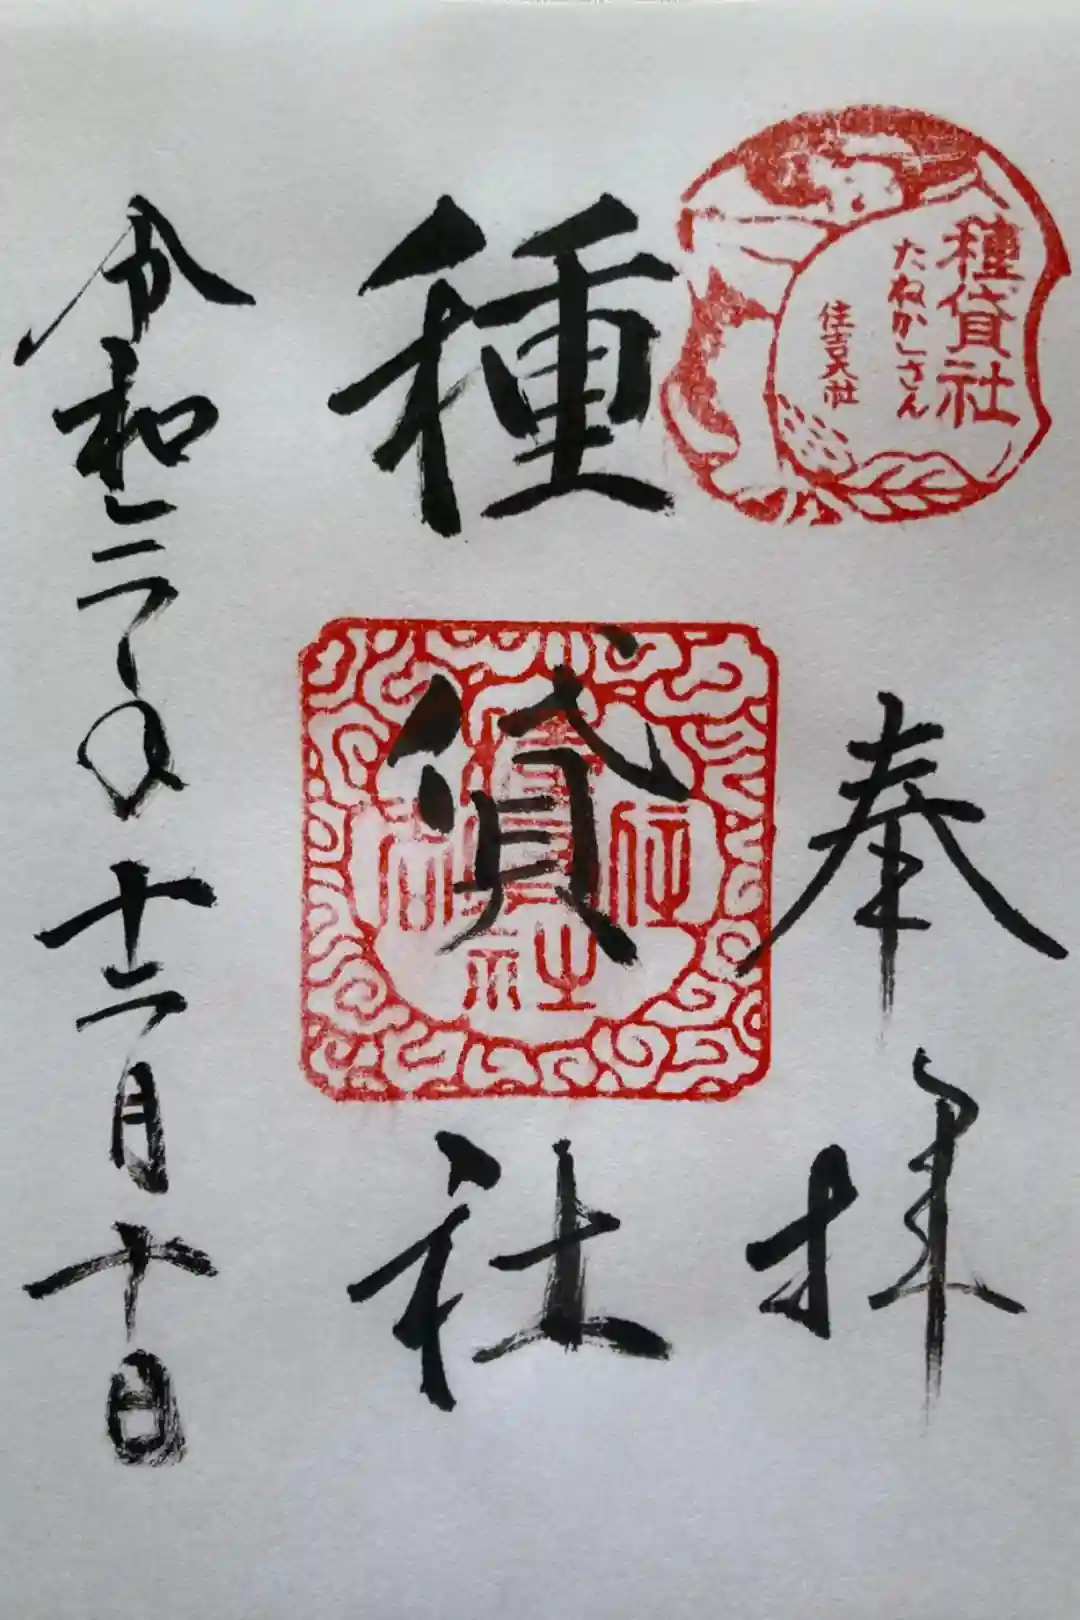 種貸社
たねかしさん
住吉大社
奉拝
種貸社
令和三年十二月十日